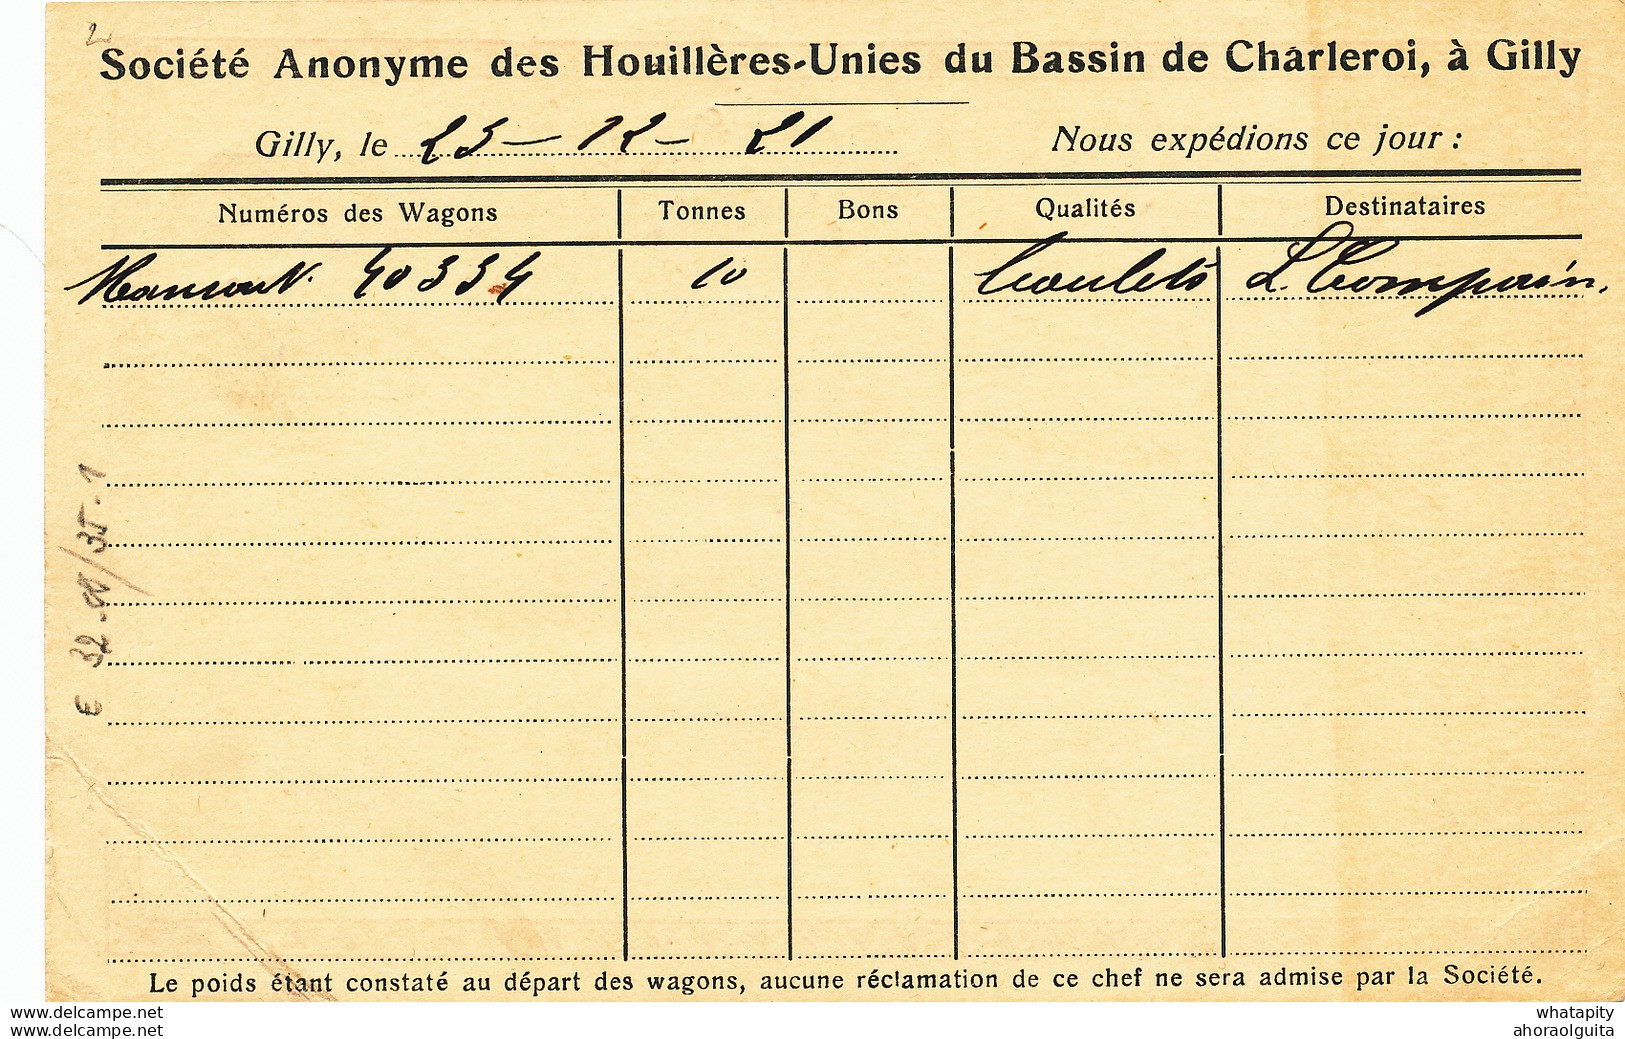 Société Anonyme des Houillères-Unies du Bassin de Charleroi, à Gilly
Gilly, le 23 - 12 - 21 Nous expédions ce jour :
Numéros des Wagons Tonnes Bons Qualités Destinataires
40334 10 L. Compain.
E 32 /35 - 1
Le poids étant constaté au départ des wagons, aucune réclamation de ce chef ne sera admise par la Société.
only delcampe.net
only delcampe.net
whatapity
ahoraolguita